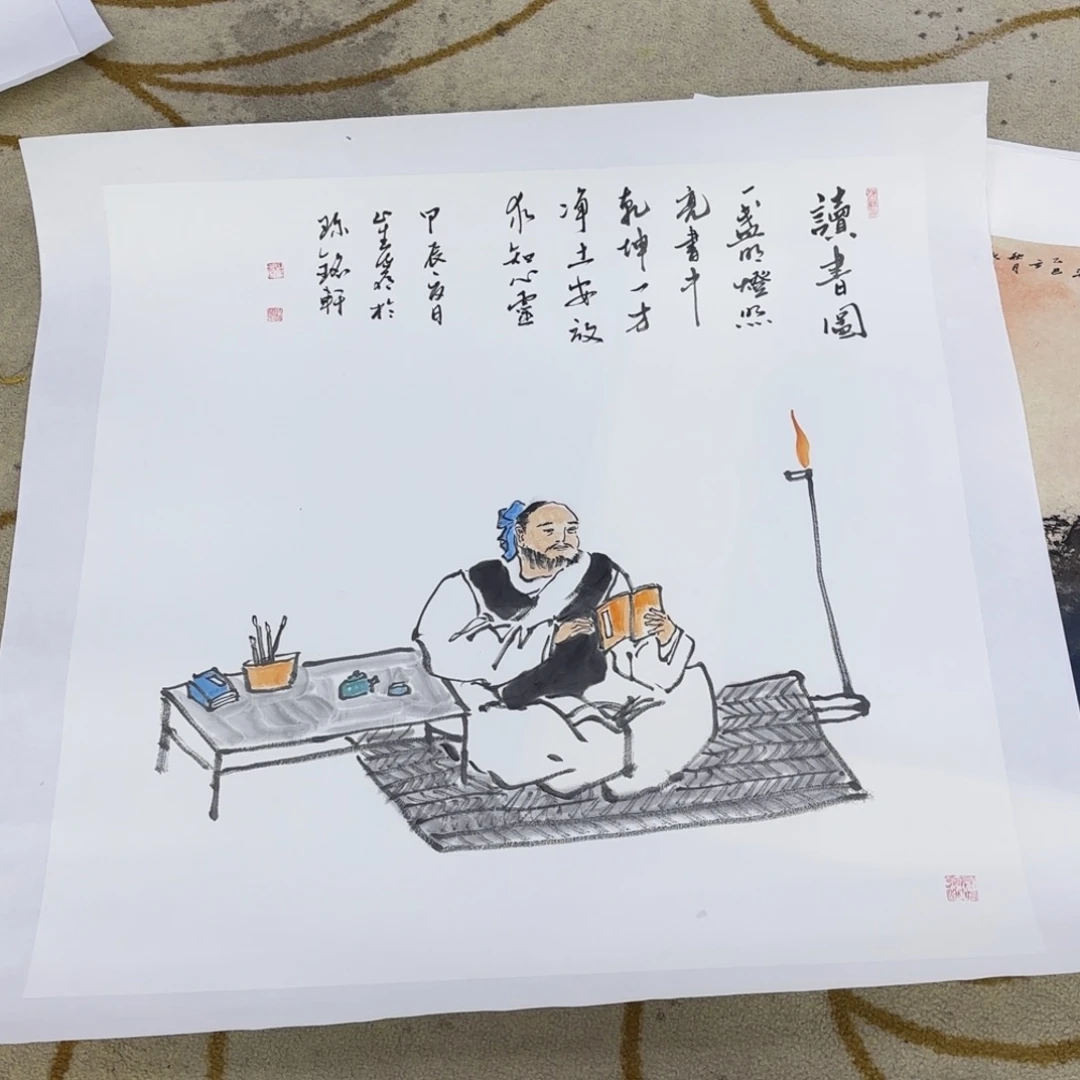 讀書圖
一盞明燈照
亮書中
乾坤一方
净土安放
求知心靈
甲辰夏日
於
珎銘軒